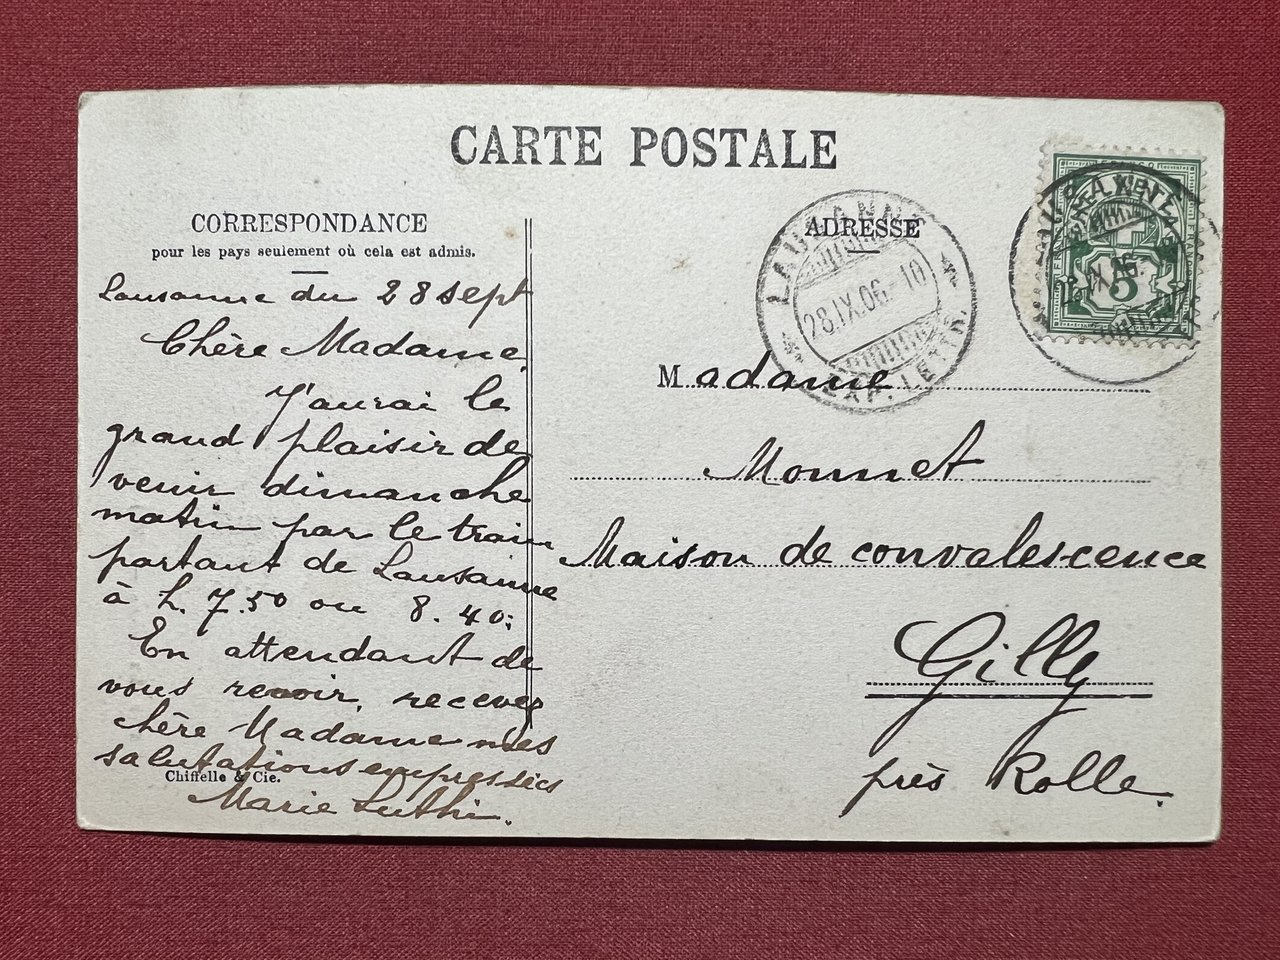 CARTE POSTALE
CORRESPONDANCE
pour les pays seulement où cela est admis.
Lausanne du 28 sept
Chère Madame,
J'aurai le
grand plaisir de
venir dimanche
matin par le train
partant de Lausanne
à h. 7.50 ou 8.40;
En attendant de
vous revoir, recevez
chère Madame mes
salutations empressées
Marie Luthi.
Chiffelle & Cie.
ADRESSE
LAUSANNE
28.IX.06-10
EXP. LETTR.
5
Madame
Monnet
Maison de convalescence
Gilly
près Rolle.